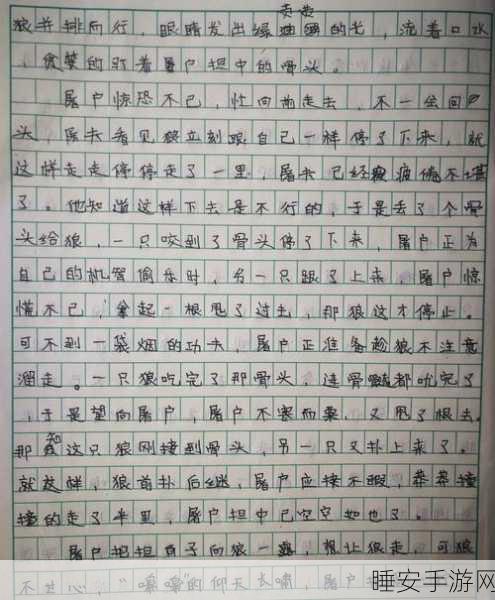 狼并排而行，眼睛发出绿油油的光，流着口水
，贪婪的盯着屠户担中的骨头。
屠户惊恐不已，忙向前走去，不一会回
头，屠夫看见狼立刻跟自己一样停了下来，就
这样走走停停走了一里，屠夫已经疲倦不堪
了。他知道这样下去是不行的，于是丢了个骨
头给狼，一只咬到了骨头停了下来，屠户正为
自己的机智偷乐时，另一只跟了上来，屠户惊
慌不已，拿起一根甩了过去，那狼这才停止。
可不到一袋烟的功夫，屠户正准备趁狼不注意
溜走。一只狼吃完了那骨头，连骨髓都吮完了
，于是望向屠户，屠户不寒而栗，又甩了根去。
那知这只狼刚接到骨头，另一只又扑上来了。
就这样，狼首扑后继，屠户应接不暇，莽莽撞
撞的走了半里，屠户担中已空空如也了。
屠户把担子向狼一露，想让狼走，可狼
不甘心，“嗥嗥”的仰天长啸，屠户
睡安手游网